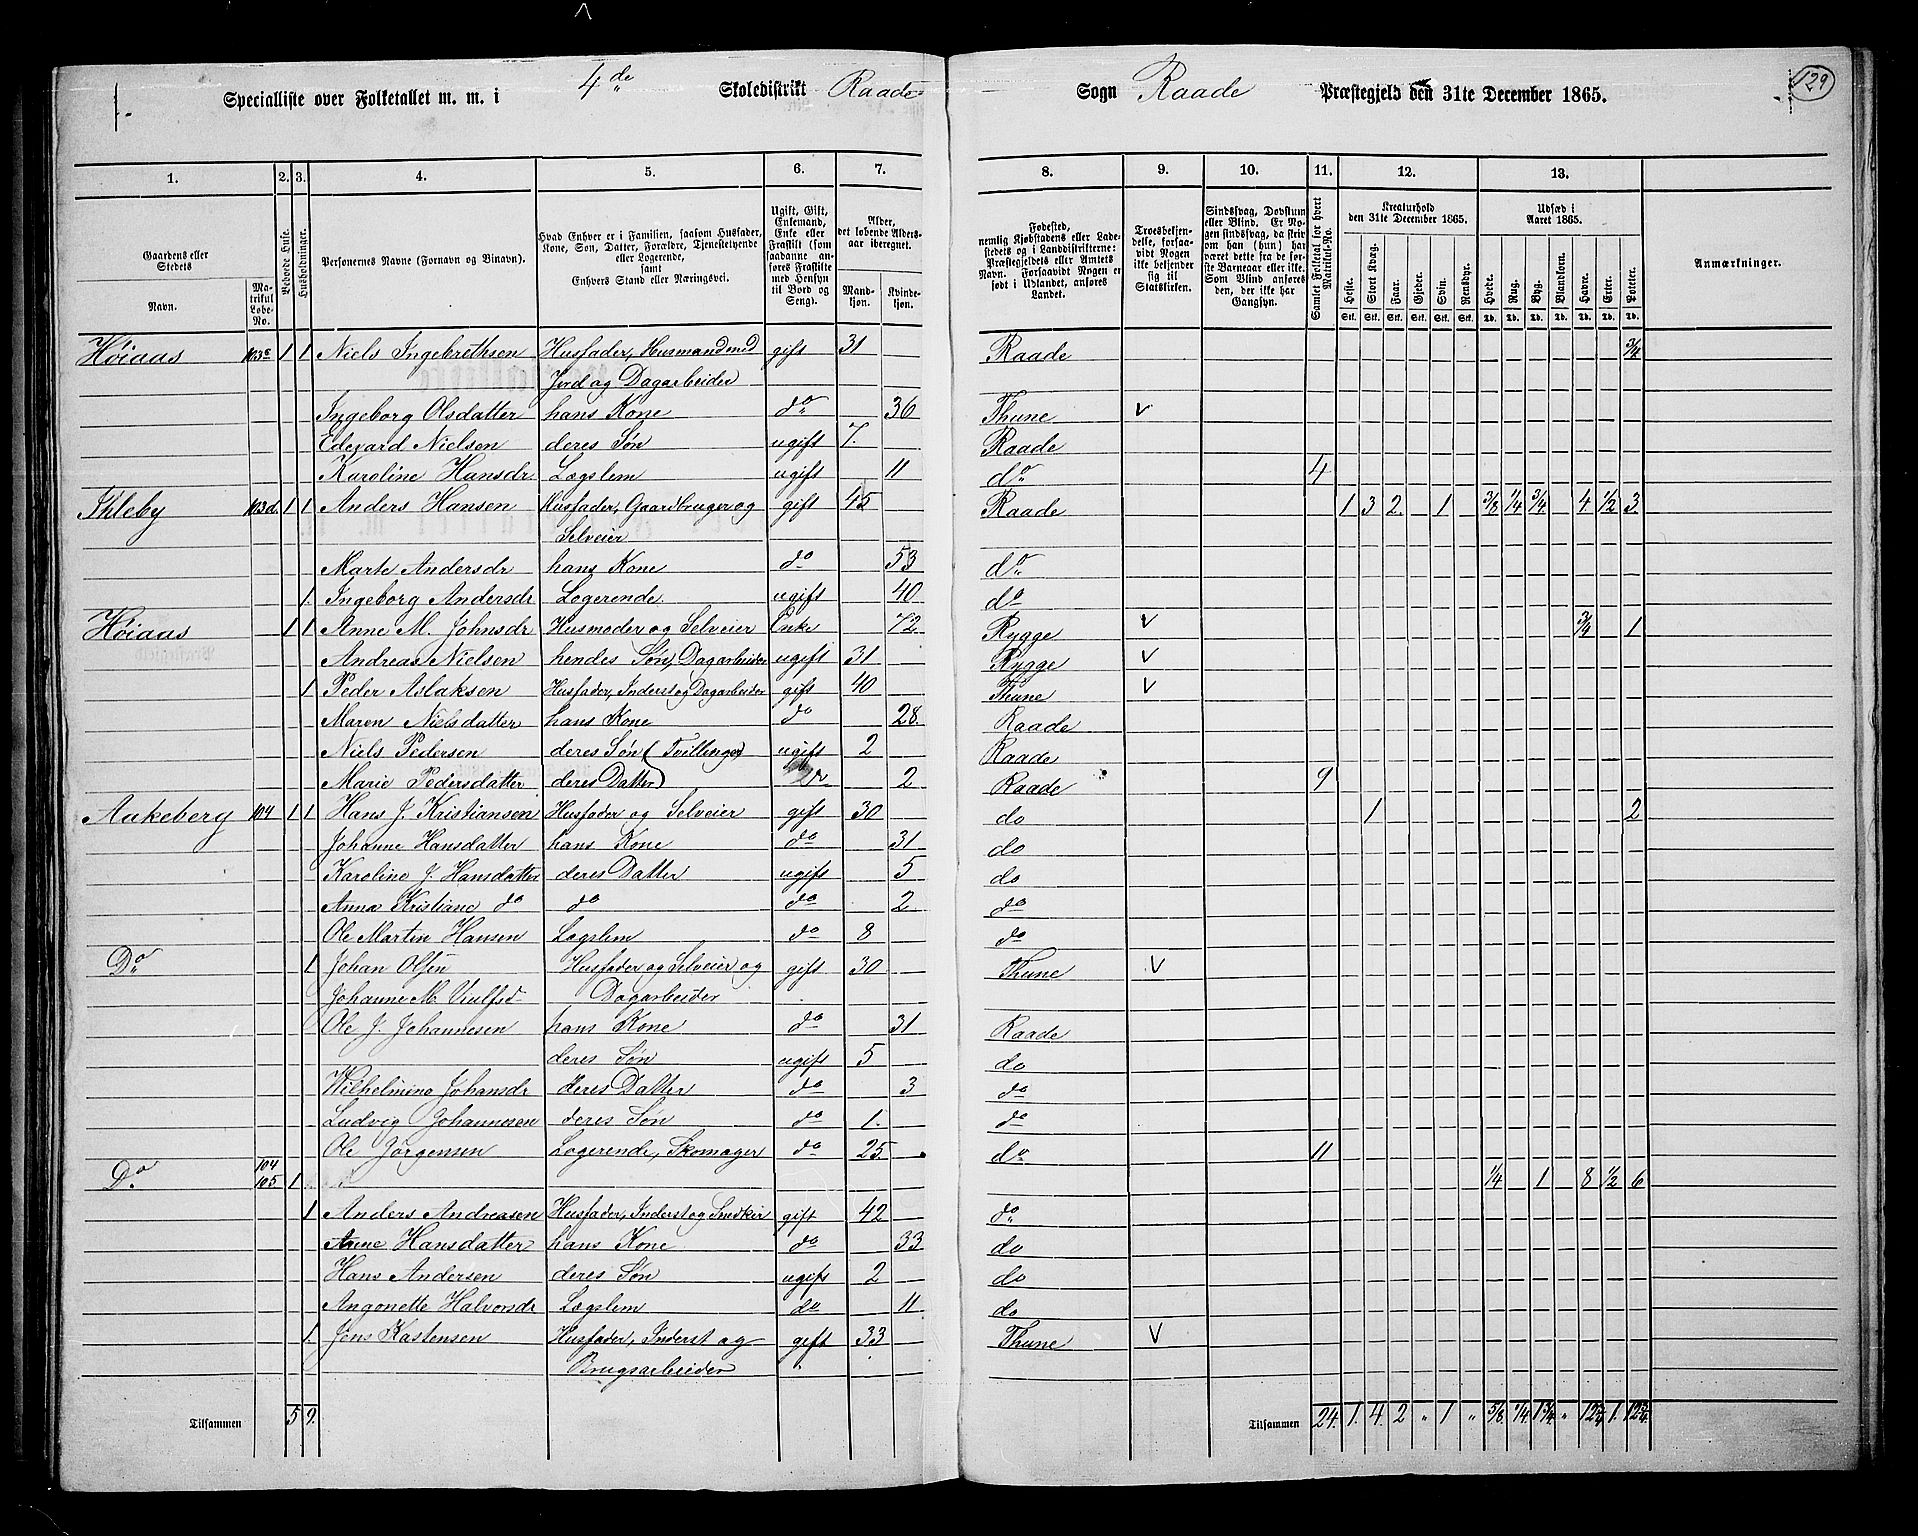 129
Specialliste over Folketallet m. m. i 4de Skoledistrikt Raade Sogn Raade Præstegjeld den 31te December 1865.
1. 2. 3. 4. 5. 6. 7. 8. 9. 10. 11. 12. 13.
Gaardens eller Stedets
Navn.
Matrikul Løbe-No.
Beboede Huse.
Husholdninger.
Personernes Navne (Fornavn og Binavn).
Hvad Enhver er i Familien, saasom Husfader, Kone, Søn, Datter, Forældre, Tjenestetyende eller Logerende, samt Enhvers Stand eller Næringsvei.
Ugift, Gift, Enkemand, Enke eller Fraskilt (som saadanne anføres Fraskilte med Hensyn til Bord og Seng).
Alder, det løbende Alders-aar iberegnet.
Mandkjøn. Kvindekjøn.
Fødested, nemlig Kjøbstadens eller Ladestedets og i Landdistrikterne: Præstegjeldets eller Amtets Navn. Forsaavidt Nogen er født i Udlandet, anføres Landet.
Troesbekjendelse, forsaavidt Nogen ikke bekjender sig til Statskirken.
Sindssvag, Døvstum eller Blind. Er Nogen sindssvag, da skrives om han (hun) har været dette fra de første Barneaar eller ikke. Som Blind anføres den, der ikke har Gangsyn.
Samlet Folketal for hvert Matrikul-No.
Kreaturhold den 31te December 1865.
Heste. Stort Kvæg. Faar. Gjeder. Svin. Rensdyr.
Udsæd i Aaret 1865.
Hvede. Rug. Byg. Blandkorn. Havre. Erter. Poteter.
Anmærkninger.
Høiaas 103e 1 1 Niels Ingebrethsen Husfader, Husmand med gift 31 Raade 3/4
Jord og Dagarbeider
Ingeborg Olsdatter hans Kone do 36 Thune V
Edevard Nielsen deres Søn ugift 7. Raade
Karoline Hansdr Lægslem ugift 11 do 4
Ihleby 103d 1 1 Anders Hansen Husfader, Gaardbruger og gift 45 Raade 1 3 2. 1 3/8 1/4 3/4 4 1/2 3.
Selveier
Marte Andersdr hans Kone do 53 do
1. Ingeborg Andersdr Logerende. ugift 40 do
Høiaas 1 1 Anne M. Johnsdr Husmoder og Selveier Enke 72. Rygge V 3/4 1
Andreas Nielsen hendes Søn, Dagarbeider ugift 31 Rygge V
1 Peder Aslaksen Husfader, Inderst og Dagarbeider gift 40 Thune V
Maren Nielsdatter hans Kone do 28. Raade
Niels Pedersen deres Søn (Tvillinger) ugift 2 Raade
Marie Pedersdatter deres Datter) do 2 Raade 9
Aakeberg 104 1 1 Hans J. Kristiansen Husfader og Selveier gift 30 do 1 2
Johanne Hansdatter hans Kone do 31 do
Karoline J. Hansdatter deres Datter ugift 5 do
Anna Kristiane do do do 2 do
Ole Martin Hansen Lægslem do 8 do
Do 1 Johan Olsen Husfader og Selveier og gift 30 Thune V
Johanne M. Dagarbeider
Ole J. Johannesen hans Kone do 31 Raade
deres Søn ugift 5 do
Wilhelmine Johansdr deres Datter do 3 do
Ludvig Johannesen deres Søn do 1. do
Ole Jørgensen Logerende, Skomager do 25 do 11
Do 104 105 1 1/4 1 8 1/2 6
1 Anders Andreasen Husfader, Inderst og Snedker gift 42 do
Anne Hansdatter hans Kone do 33 do
Hans Andersen deres Søn ugift 2 do
Angonette Halvorsdr Lægslem do 11 do
1. Jens Kastensen Husfader, Inderst og gift 33 Thune V
Brugsarbeider
Tilsammen 5 9. Tilsammen 24. 1. 4. 2 " 1 " 5/8. 1/4 1 3/4 " 12 3/4 1. 12 3/4.